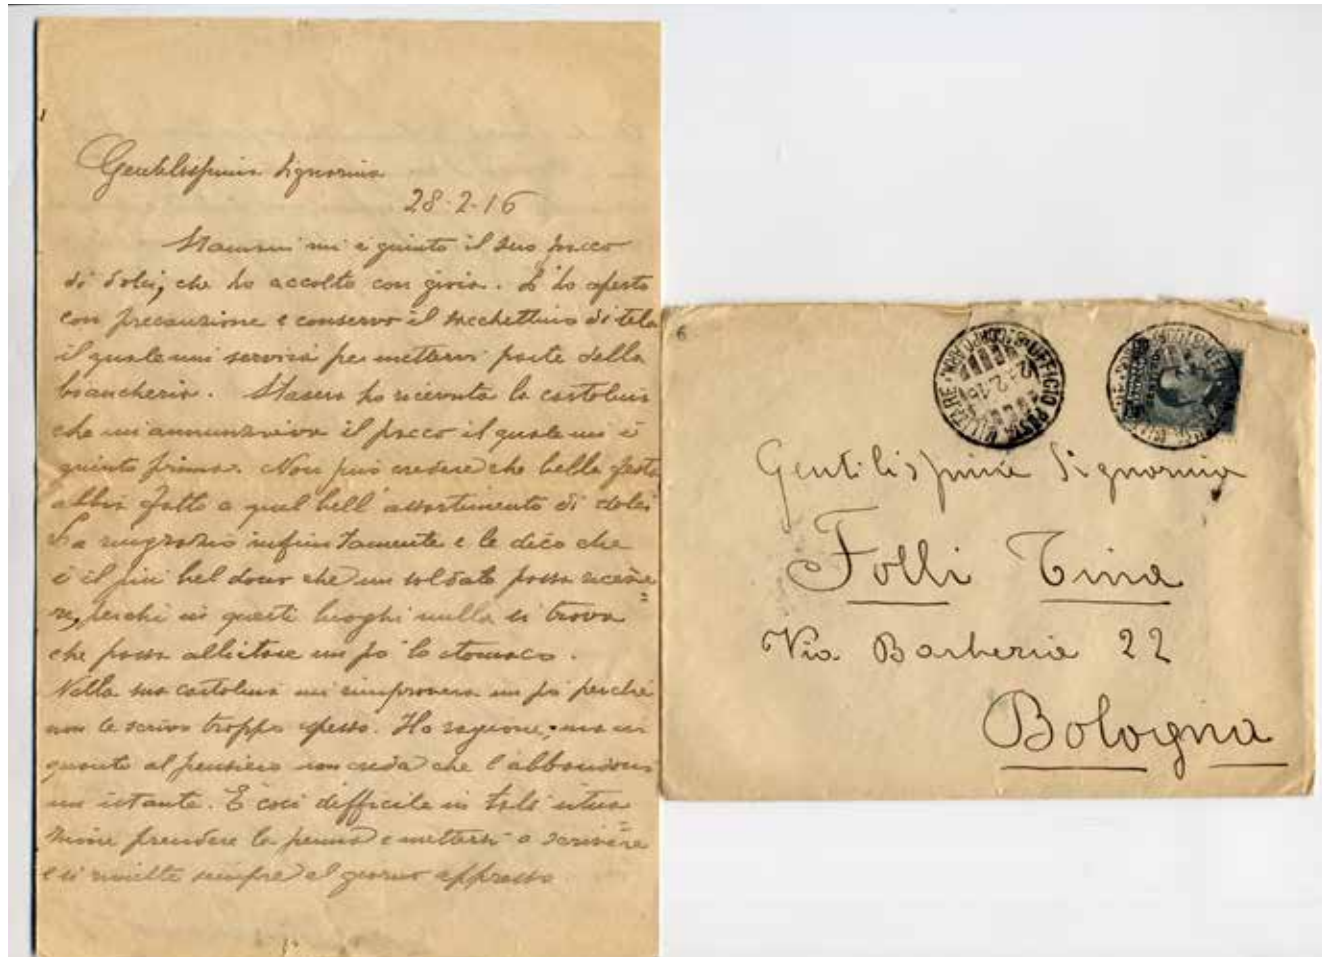 Gentilissima Signorina
28-2-16
Stamani mi è giunto il suo pacco
di dolci, che ho accolto con gioia. L'ho aperto
con precauzione e conservo il sacchettino di tela
il quale mi servirà per mettervi parte della
biancheria. Stasera ho ricevuta la cartolina
che mi annunziava il pacco il quale mi è
giunto prima. Non può credere che bella festa
abbia fatto a quel bell'assortimento di dolci
La ringrazio infinitamente e le dico che
è il più bel dono che un soldato possa riceve=
re, perchè in questi luoghi nulla si trova
che possa allietare un po' lo stomaco.
Nella sua cartolina mi rimprovera un po' perchè
non le scrivo troppo spesso. Ha ragione, ma in
quanto al pensiero non creda che l'abbandoni
un istante. È così difficile in tale situa=
zione prendere la penna e mettersi a scrivere
e si rimette sempre al giorno appresso
6
UFFICIO POSTA MILITARE
2.16
Gentilissima Signorina
Folli Tina
Via Barberia 22
Bologna